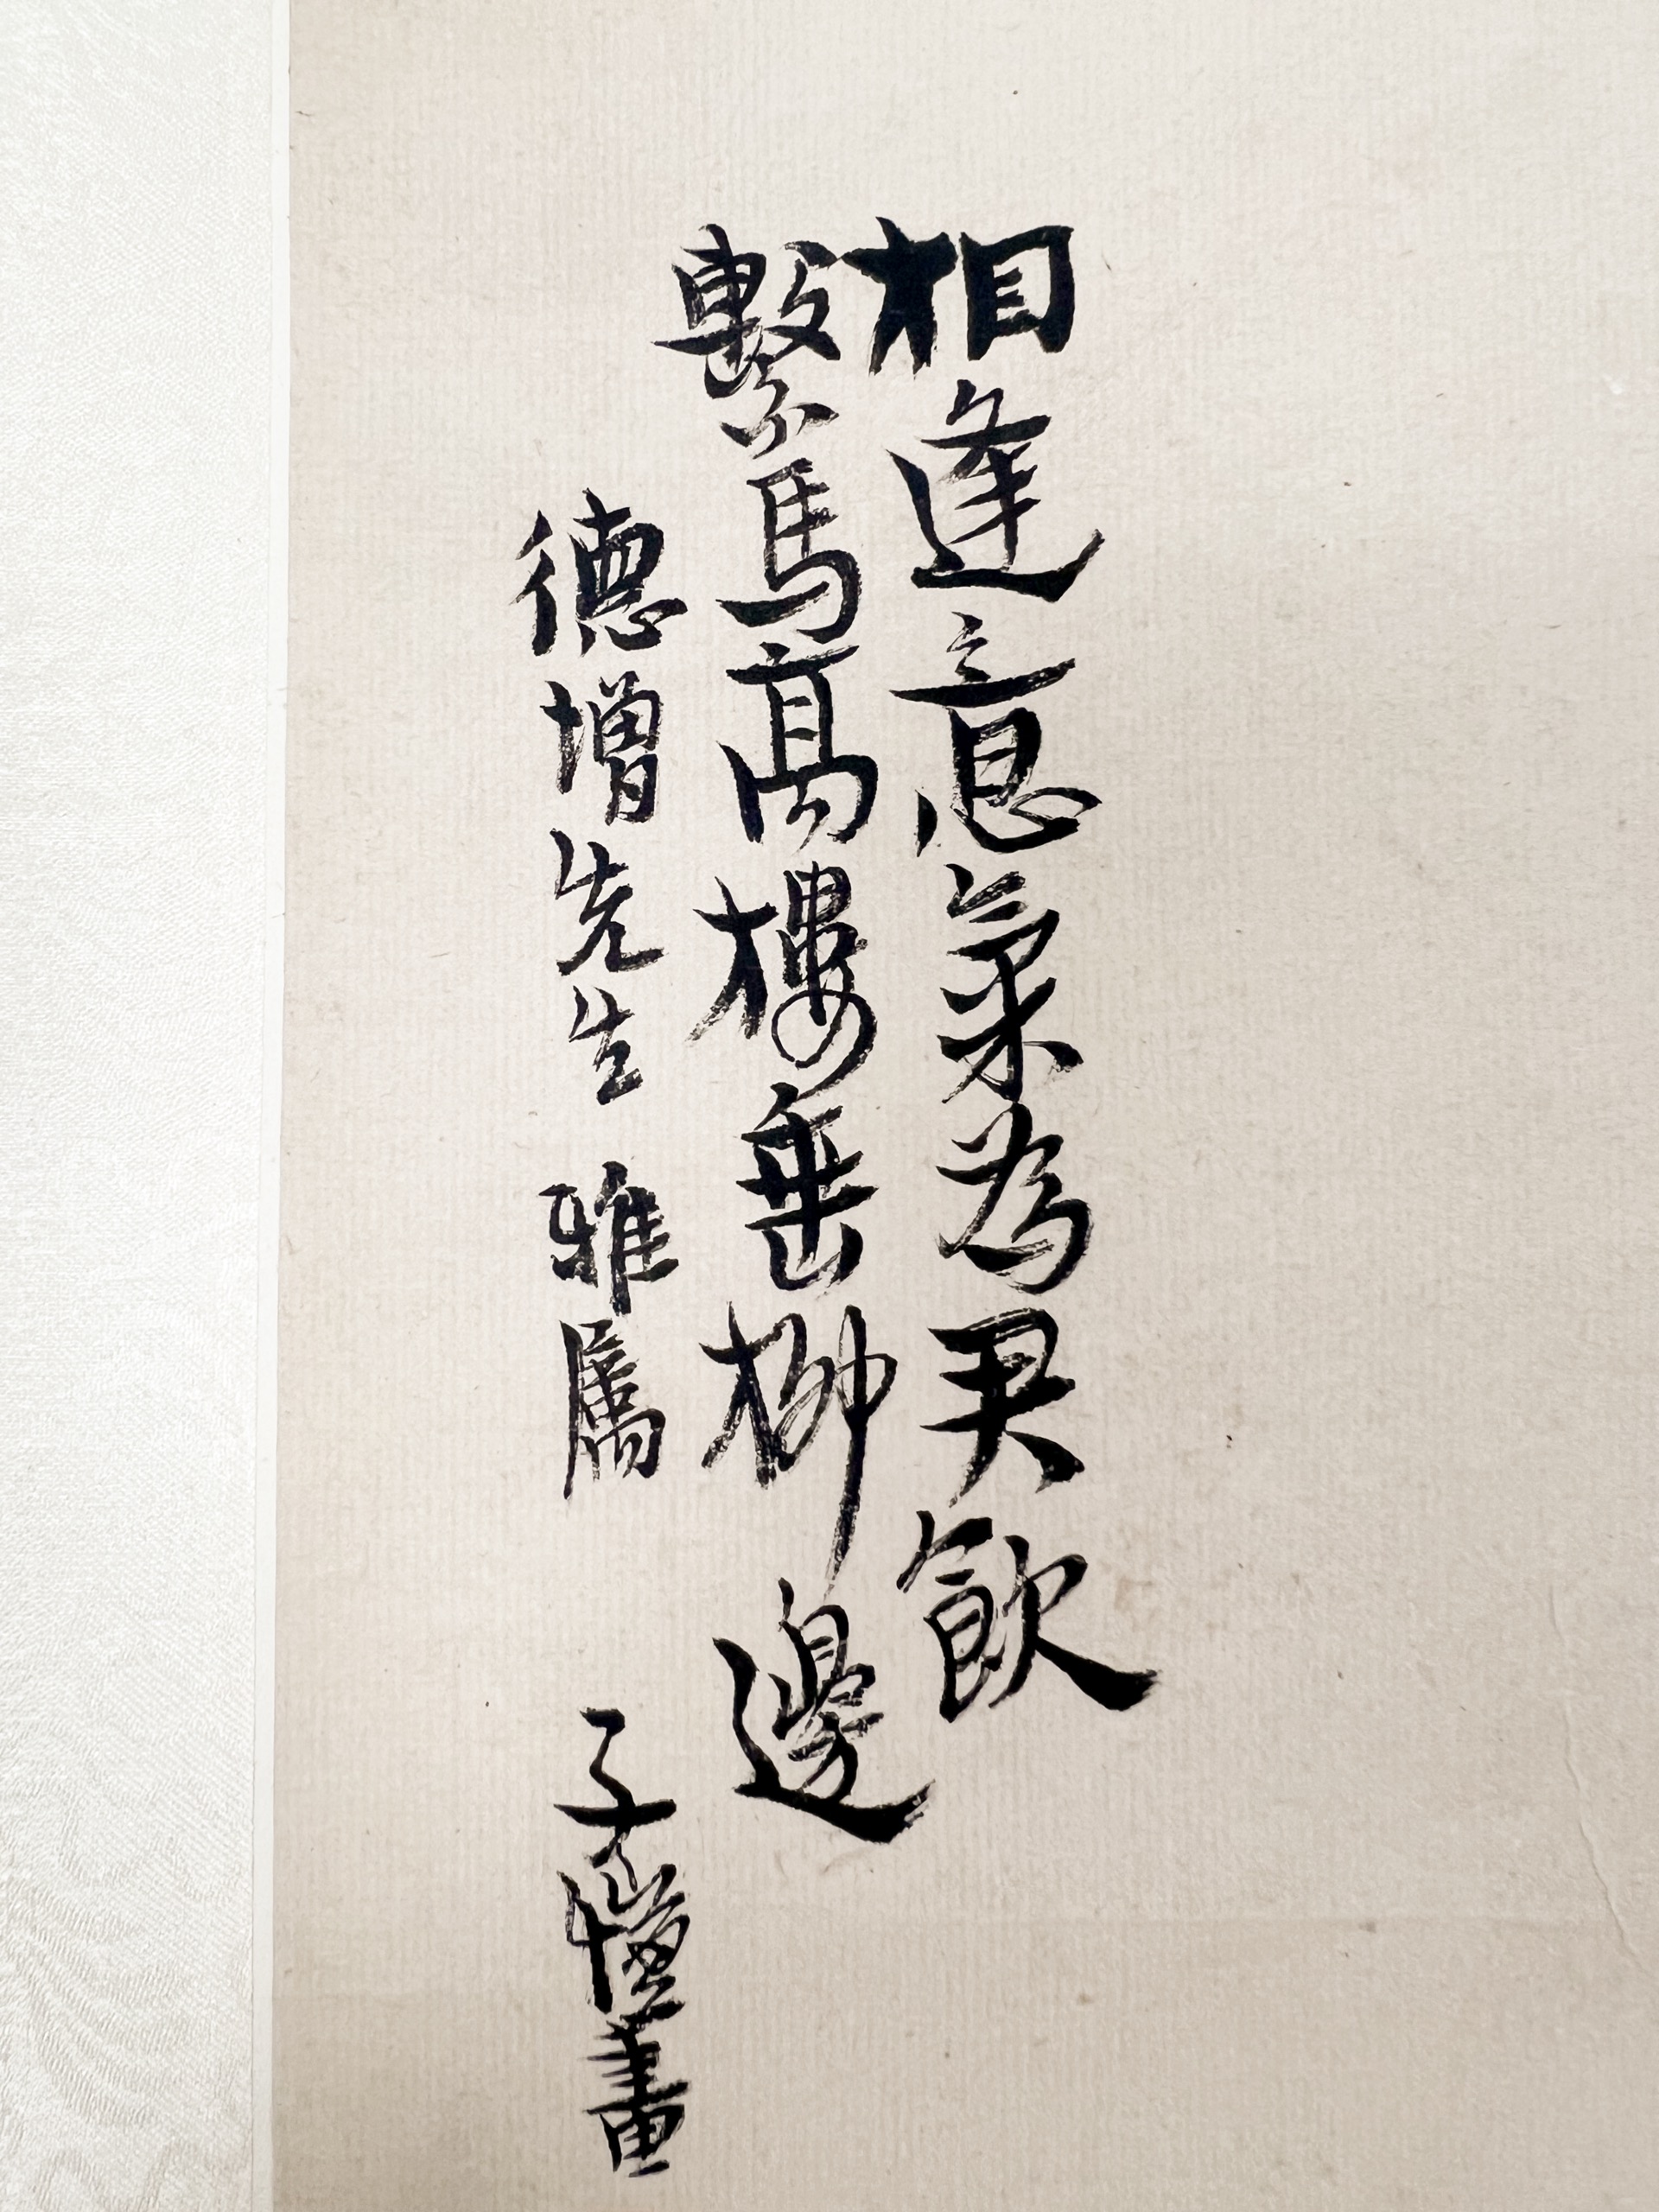 相逢意氣為君飲
繫馬高樓垂柳邊
德增先生 雅屬
子愷畫